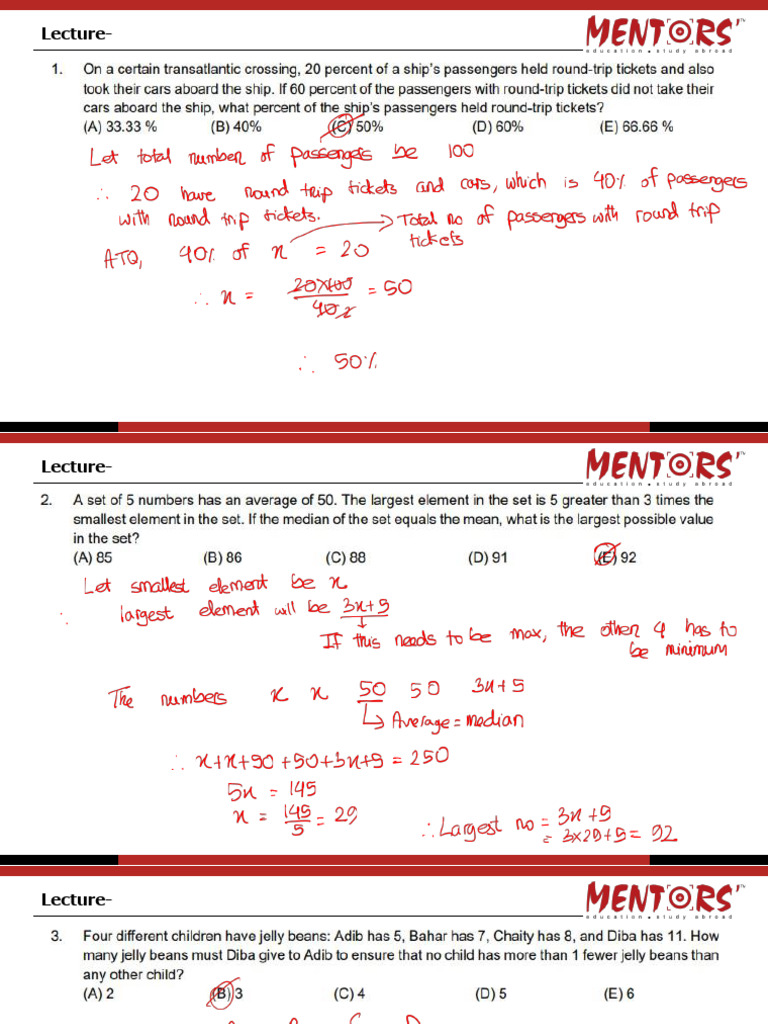 Lecture-
MENTORS'
education • study abroad
1. On a certain transatlantic crossing, 20 percent of a ship's passengers held round-trip tickets and also
took their cars aboard the ship. If 60 percent of the passengers with round-trip tickets did not take their
cars aboard the ship, what percent of the ship's passengers held round-trip tickets?
(A) 33.33 % (B) 40% (C) 50% (D) 60% (E) 66.66 %
Let total number of passengers be 100
∴ 20 have round trip tickets and cars, which is 40% of passengers
with round trip tickets.
→ Total no of passengers with round trip
tickets
ATQ, 40% of x = 20
∴ x = 20×100 / 40x = 50
∴ 50%
Lecture-
MENTORS'
education • study abroad
2. A set of 5 numbers has an average of 50. The largest element in the set is 5 greater than 3 times the
smallest element in the set. If the median of the set equals the mean, what is the largest possible value
in the set?
(A) 85 (B) 86 (C) 88 (D) 91 (E) 92
Let smallest element be x
∴ largest element will be 3x+5
If this needs to be max, the other 4 has to
be minimum
The numbers x x 50 50 3x+5
↳ Average = median
∴ x+x+50+50+3x+5 = 250
5x = 145
x = 145/5 = 29
∴ Largest no = 3x+5
= 3×29+5 = 92
Lecture-
MENTORS'
education • study abroad
3. Four different children have jelly beans: Adib has 5, Bahar has 7, Chaity has 8, and Diba has 11. How
many jelly beans must Diba give to Adib to ensure that no child has more than 1 fewer jelly beans than
any other child?
(A) 2 (B) 3 (C) 4 (D) 5 (E) 6